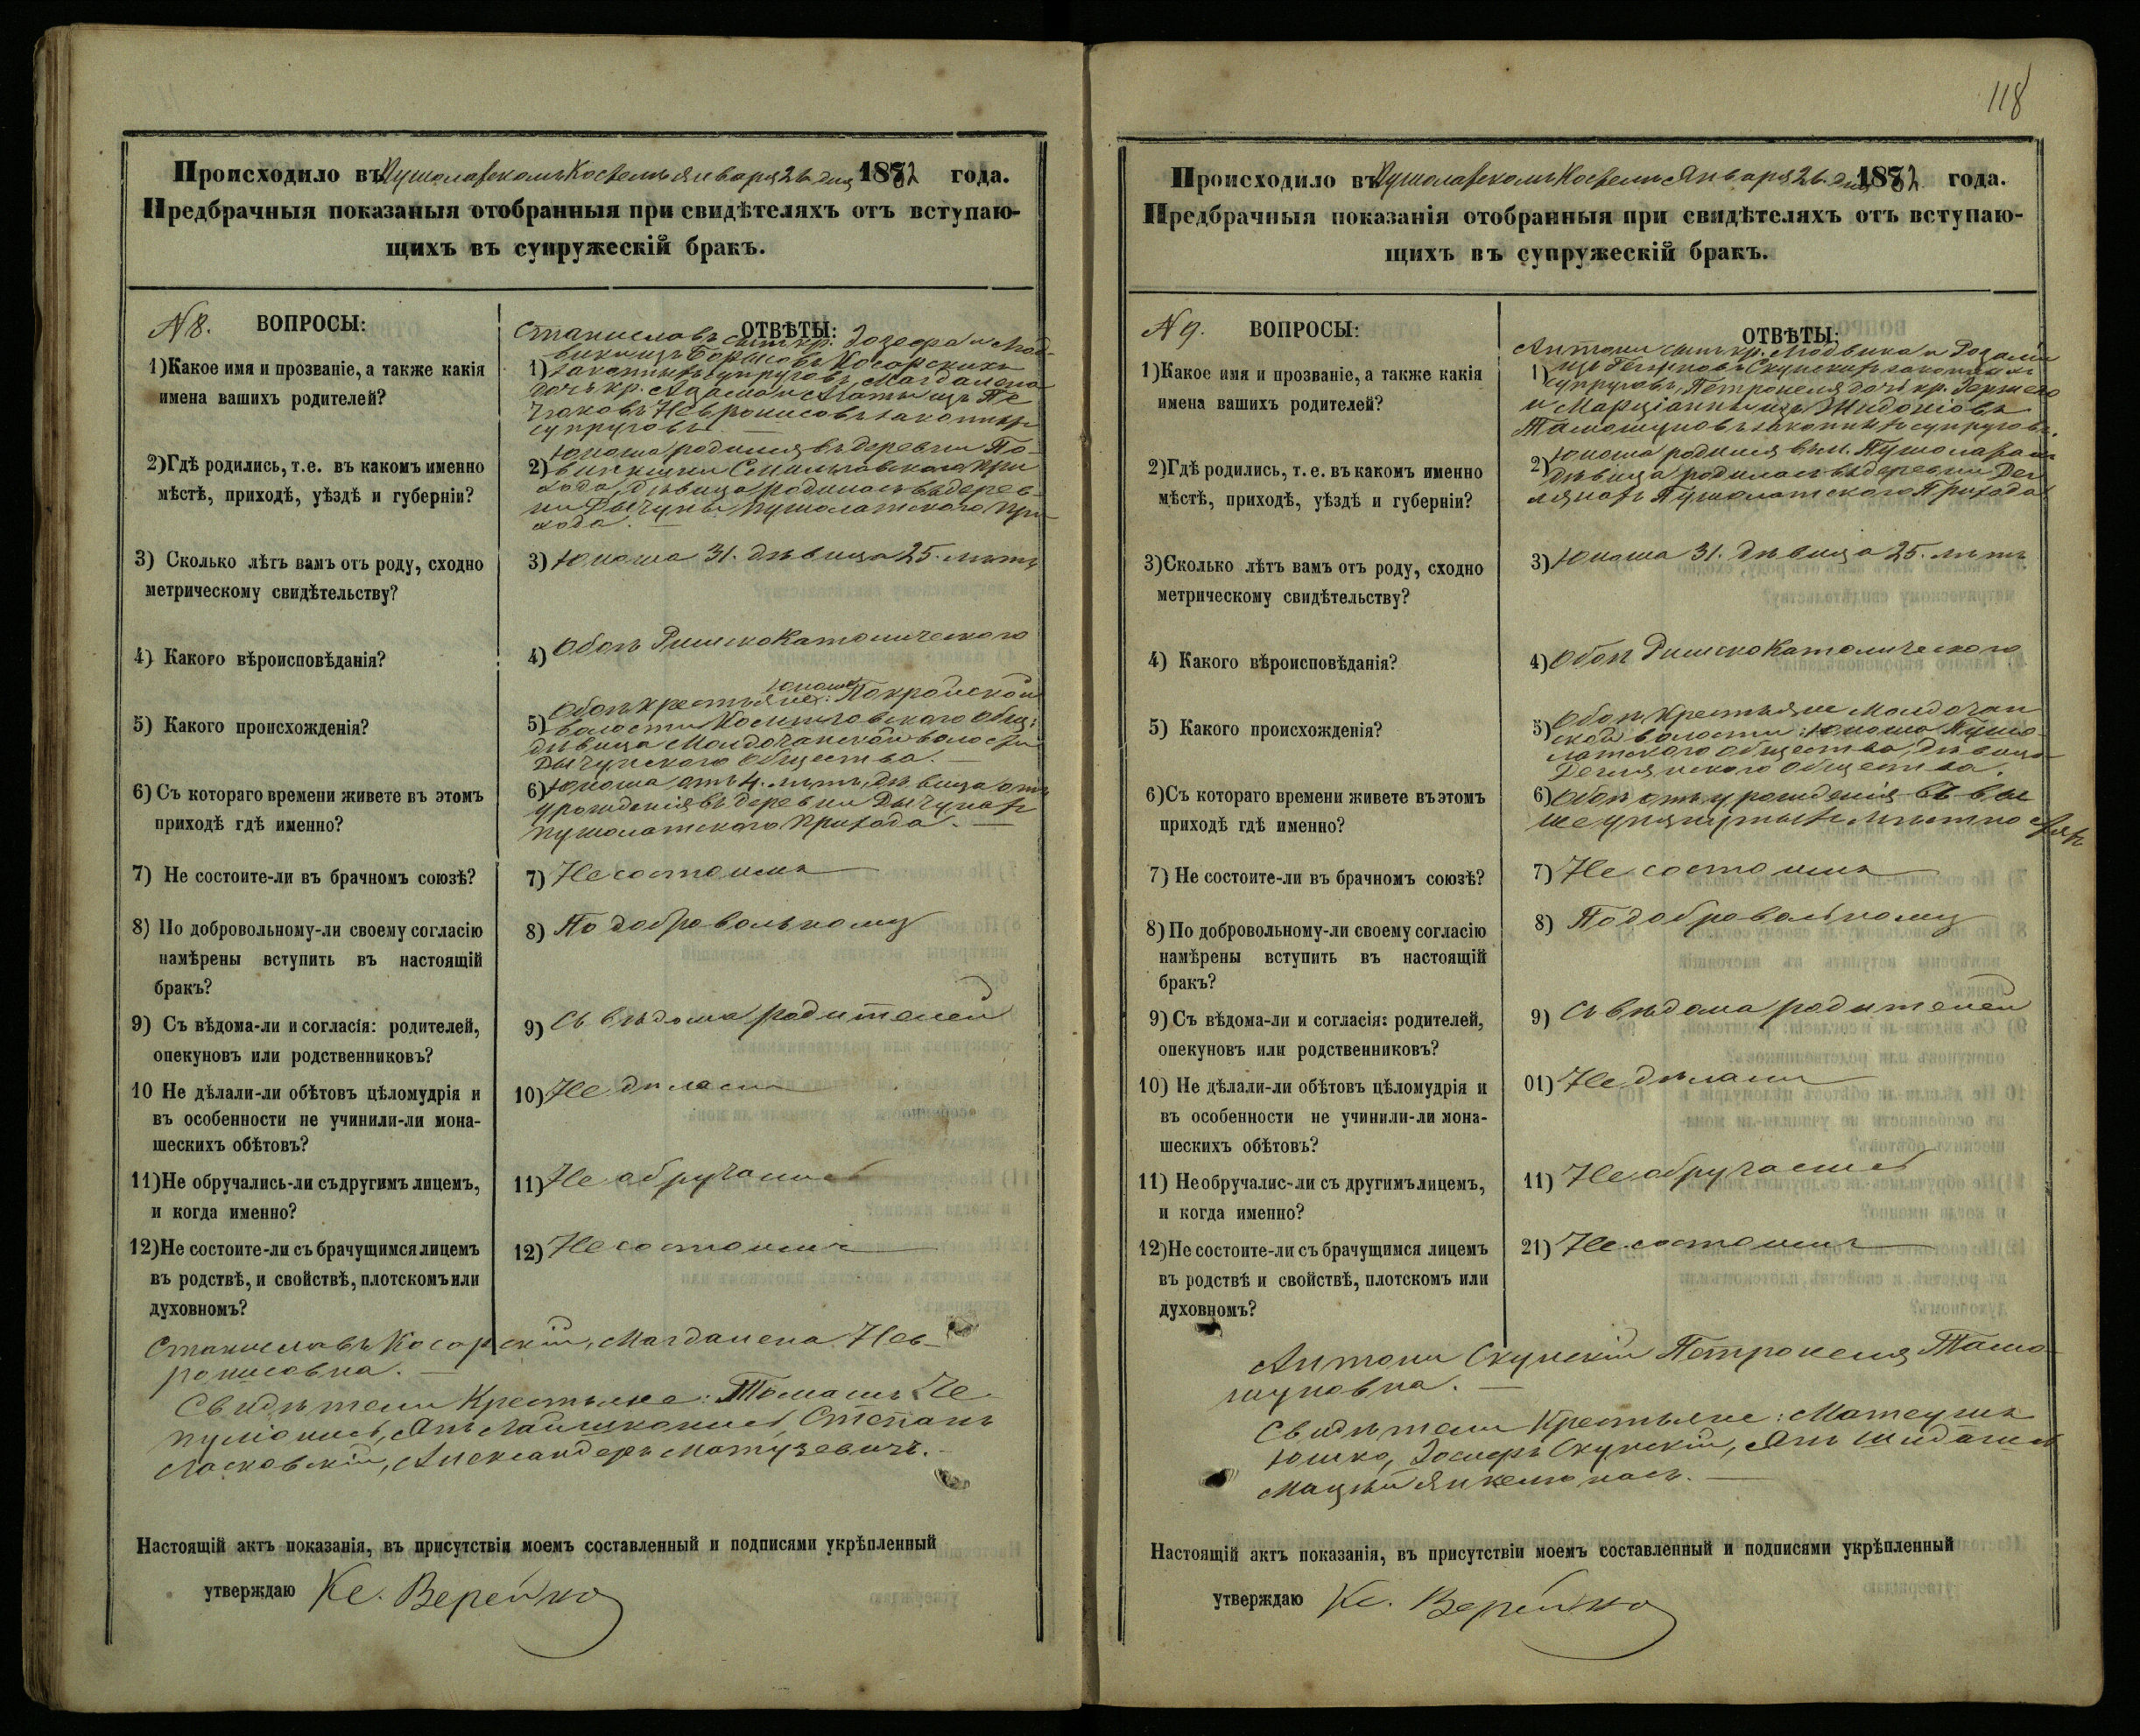 Происходило въ Пушолатскомъ Костелѣ Января 26. дня 1882 года.
Предбрачныя показаныя отобранныя при свидѣтеляхъ отъ вступаю-
щихъ въ супружескій бракъ.
N 8. ВОПРОСЫ:
ОТВѢТЫ:
1) Какое имя и прозваніе, а также какія
имена вашихъ родителей?
Станиславъ сынъ кр: Іозефа и Люд-
вики изъ Косарскихъ
1) законныхъ супруговъ, Магдалена
дочь кр. Адама и Агаты изъ
Невронисовъ законныхъ
супруговъ. —
2) Гдѣ родились, т.е. въ какомъ именно
мѣстѣ, приходѣ, уѣздѣ и губерніи?
Юноша родился въ деревни
2) при
хода, дѣвица родилась въ дерев-
ни Дычуны Пушолатскаго при
хода. —
3) Сколько лѣтъ вамъ отъ роду, сходно
метрическому свидѣтельству?
3) Юноша 31. дѣвица 25. лѣтъ
4) Какого вѣроисповѣданія?
4) Обоѣ РимскоКатолическаго
5) Какого происхожденія?
юноша
Обоѣ крестьяне: Покройской
5) волости общ:
дѣвица волости
Дычунскаго Общества. —
6) Съ котораго времени живете въ этомъ
приходѣ гдѣ именно?
6) Юноша отъ 4. лѣтъ, дѣвица отъ
урожденія въ деревни Дычунахъ
Пушолатскаго Прихода. —
7) Не состоите-ли въ брачномъ союзѣ?
7) Не состоимъ
8) По добровольному-ли своему согласію
намѣрены вступить въ настоящій
бракъ?
8) По добровольному
9) Съ вѣдома-ли и согласія: родителей,
опекуновъ или родственниковъ?
9) Съ вѣдома родителей
10 Не дѣлали-ли обѣтовъ цѣломудрія и
въ особенности не учинили-ли мона-
шескихъ обѣтовъ?
10) Не дѣлали
11) Не обручались-ли съ другимъ лицемъ,
и когда именно?
11) Не обручались
12) Не состоите-ли съ брачущимся лицемъ
въ родствѣ, и свойствѣ, плотскомъ или
духовномъ?
12) Не состоимъ
Станиславъ Косарскій, Магдалена Нев-
ронисовна. —
Свидѣтели Крестьяне: Томашъ Че-
пулionисъ, Янъ Степанъ
Ласковскій, Александеръ Матузевичъ. —
Настоящій актъ показанія, въ присутствіи моемъ составленный и подписями укрѣпленный
утверждаю Кс. Верейко
118
Происходило въ Пушолатскомъ Костелѣ Января 26. дня 1882 года.
Предбрачныя показанія отобранныя при свидѣтеляхъ отъ вступаю-
щихъ въ супружескій бракъ.
N 9. ВОПРОСЫ:
ОТВѢТЫ:
1) Какое имя и прозваніе, а также какія
имена вашихъ родителей?
Антони сынъ кр. Людвика и Розаліи
1) изъ Скунскихъ законныхъ
супруговъ, Петронеля дочь кр.
и Марціанны изъ Жидонювъ
Тамошуновъ законныхъ супруговъ.
2) Гдѣ родились, т. е. въ какомъ именно
мѣстѣ, приходѣ, уѣздѣ и губерніи?
2) Юноша родился въ м. Пушолатахъ
дѣвица родилась въ деревни
Пушолатскаго Прихода
3) Сколько лѣтъ вамъ отъ роду, сходно
метрическому свидѣтельству?
3) Юноша 31. дѣвица 25. лѣтъ
4) Какого вѣроисповѣданія?
4) Обоѣ РимскоКатолическаго
5) Какого происхожденія?
5) Обоѣ Крестьяне
ской волости: Юноша Пушо-
латскаго общества, дѣвица
общества.
6) Съ котораго времени живете въ этомъ
приходѣ гдѣ именно?
6) Обоѣ отъ урожденія въ вы
шеупянутыхъ мѣстностяхъ
7) Не состоите-ли въ брачномъ союзѣ?
7) Не состоимъ
8) По добровольному-ли своему согласію
намѣрены вступить въ настоящій
бракъ?
8) По добровольному
9) Съ вѣдома-ли и согласія: родителей,
опекуновъ или родственниковъ?
9) Съ вѣдома родителей
10) Не дѣлали-ли обѣтовъ цѣломудрія и
въ особенности не учинили-ли мона-
шескихъ обѣтовъ?
01) Не дѣлали
11) Необручалис-ли съ другимъ лицемъ,
и когда именно?
11) Не обручались
12) Не состоите-ли съ брачущимся лицемъ
въ родствѣ и свойствѣ, плотскомъ или
духовномъ?
21) Не состоимъ
Антони Скунскій Петронеля Тамо-
шуновна. —
Свидѣтели Крестьяне: Матеушъ
Юшко, Іосифъ Скунскій, Янъ
Мацѣй Янкелюнасъ. —
Настоящій актъ показанія, въ присутствіи моемъ составленный и подписями укрѣпленный
утверждаю Кс. Верейко